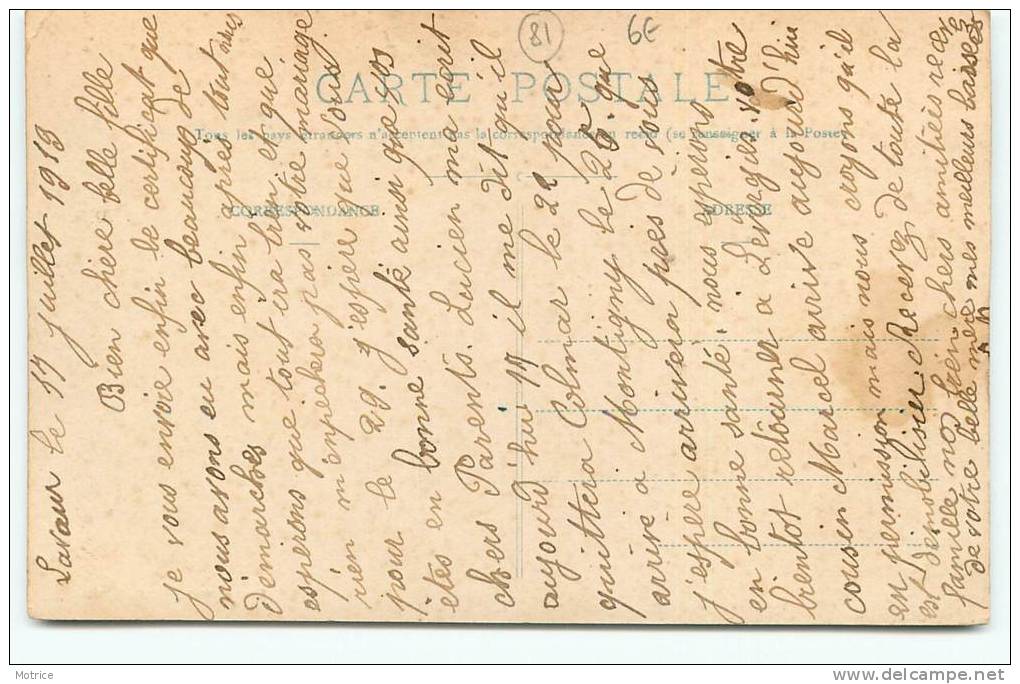 81
6€
CARTE POSTALE
Tous les pays étrangers n'acceptent pas la correspondance au recto (se renseigner à la Poste)
CORRESPONDANCE
ADRESSE
Lavaur le 17 juillet 1919
Bien chere belle fille
Je vous envoie enfin le certificat que
nous avons eu avec beaucoup de
demarches mais enfin après tout nous
esperons que tout ira bien et que
rien m'enpechera pas votre mariage
pour le 29. J'espere que vous
êtes en bonne santé ainsi que vos
chers Parents. Lucien ma ecrit
aujourd'hui 17 il me dit qu'il
quittera Colmar le 22 pour
arrive a Montigny le 25. que
j'espere arrivera près de vous
en bonne santé. nous esperons
bientot retourner a Lesegris.
cousin Marcel arrive aujourd'hui
en permission mais nous croyons qu'il
est démobiliser. recevez de toute la
famille nos bien chers amitiées
de votre belle mère mes meilleurs baisers
Motrice
www.delcampe.net